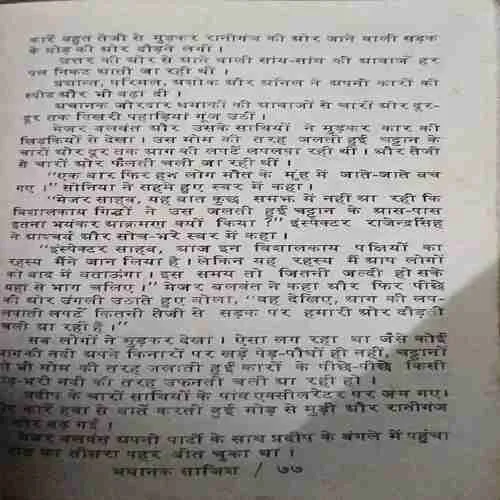 कारें बहुत तेजी से मुड़कर रानीगंज की ओर जाने वाली सड़क
के मोड़ की ओर दौड़ने लगीं ।
उत्तर की ओर से आने वाली सांय-सांय की आवाजें हर
पल निकट आती जा रही थीं ।
प्रशान्त, परिमल, अशोक और अनिल ने अपनी कारों की
स्पीड और भी बढ़ा दी ।
अचानक जोरदार धमाकों की आवाजों से चारों ओर दूर-
दूर तक बिखरी पहाड़ियां गूंज उठीं ।
मेजर बलवंत और उसके साथियों ने मुड़कर कार की
खिड़कियों से देखा । उस मोम की तरह जलती हुई चट्टान के
चारों ओर दूर तक आग की लपटें लपलपा रही थीं । और तेजी
से चारों ओर फैलती चली जा रही थीं ।
“एक बार फिर हम लोग मौत के मुंह में जाते-जाते बच
गए ।” सोनिया ने सहमे हुए स्वर में कहा ।
“मेजर साहब, यह बात कुछ समझ में नहीं आ रही कि
विशालकाय गिद्धों ने उस जलती हुई चट्टान के आस-पास
इतना भयंकर आक्रमण क्यों किया ?” इंस्पैक्टर राजेन्द्रसिंह
ने आश्चर्य और सोच-भरे स्वर में कहा ।
“इंस्पैक्टर साहब, आज इन विशालकाय पक्षियों का
रहस्य मैंने जान लिया है । लेकिन यह रहस्य मैं आप लोगों
को बाद में बताऊंगा । इस समय तो जितनी जल्दी हो सके
यहां से भाग चलिए ।” मेजर बलवंत ने कहा और फिर पीछे
की ओर उंगली उठाते हुए बोला, “वह देखिए, आग की लप-
लपाती लपटें कितनी तेजी से सड़क पर हमारी ओर दौड़ती
चली आ रही हैं ।”
सब लोगों ने मुड़कर देखा । ऐसा लग रहा था जैसे कोई
आग की नदी अपने किनारों पर खड़े पेड़-पौधों ही नहीं, चट्टानों
को भी मोम की तरह जलाती हुई कारों के पीछे-पीछे किसी
बाढ़-भरी नदी की तरह उफनती चली आ रही हो ।
प्रदीप के चारों साथियों के पांव एक्सीलरेटर पर जम गए।
और कारें हवा से बातें करती हुई मोड़ से मुड़ीं और रानीगंज
की ओर बढ़ गईं ।
मेजर बलवंत अपनी पार्टी के साथ प्रदीप के बंगले में पहुंचा
रात का तीसरा पहर बीत चुका था ।
भयानक साजिश / ७७